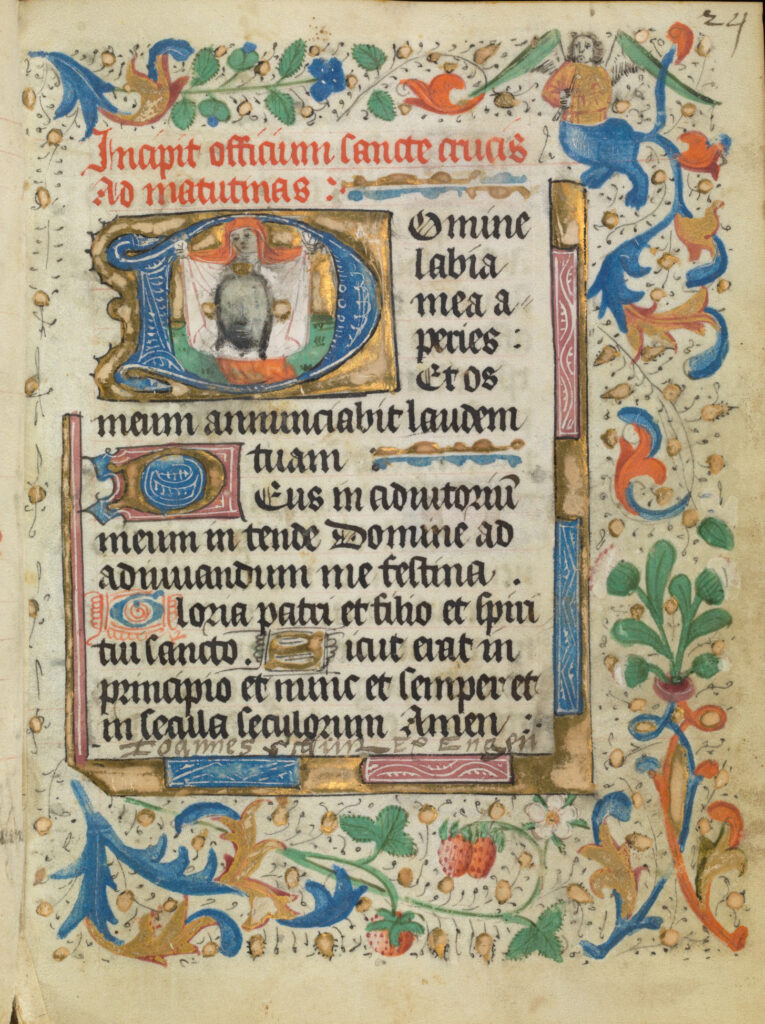 24
Incipit officium sancte crucis
Ad matutinas :
DOmine
labia
mea a
peries :
Et os
meum annunciabit laudem
tuam
DEus in adiutoriū
meum in tende Domine ad
adiuuandum me festina .
Gloria patri et filio et spiri
tui sancto. Sicut erat in
principio et nunc et semper et
in secula seculorum Amen :
Ioannes Ex Engen